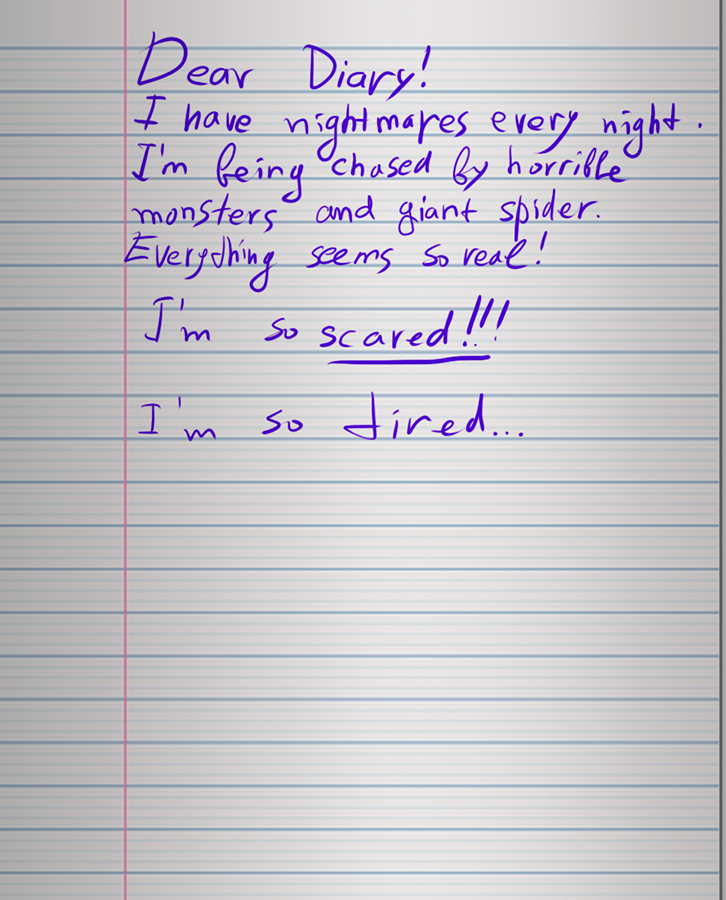 Dear Diary!
I have nightmares every night.
I'm being chased by horrible
monsters and giant spider.
Everything seems so real!
I'm so scared!!!
I'm so tired...